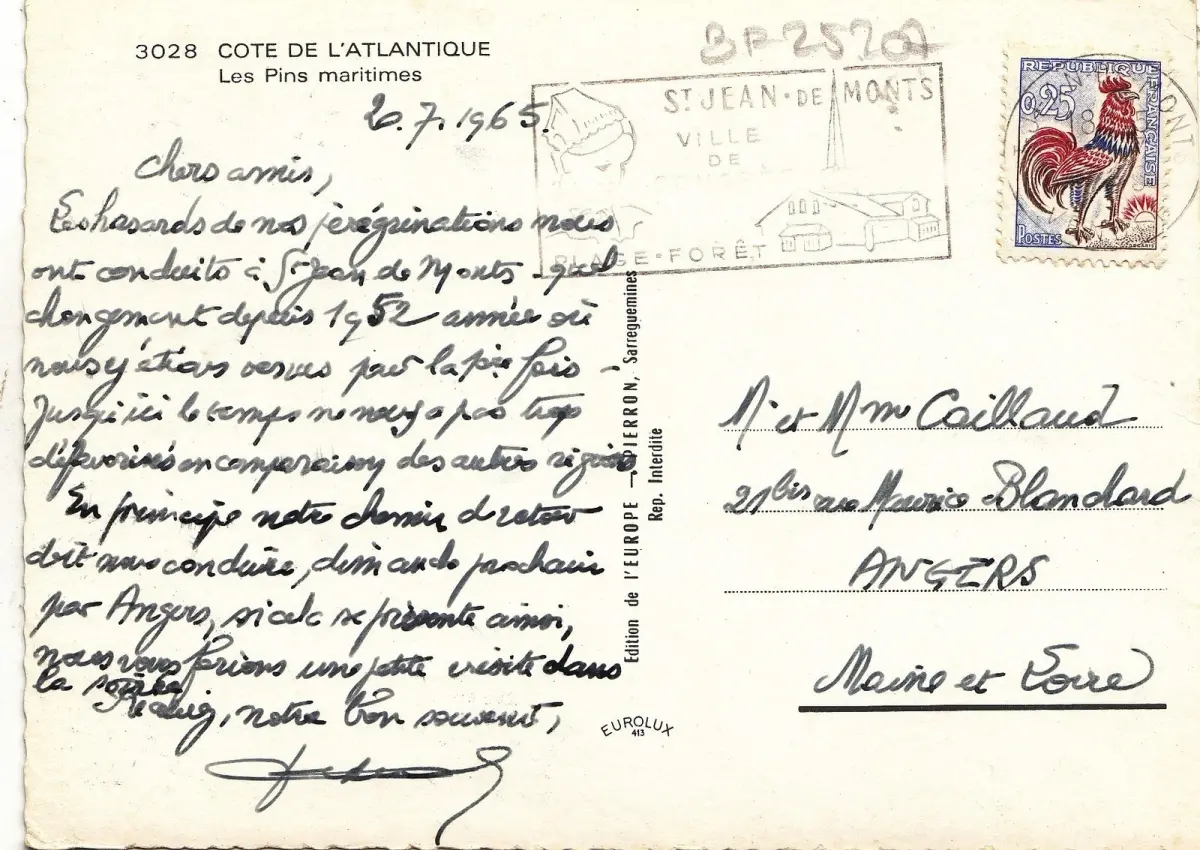 3028 COTE DE L'ATLANTIQUE
Les Pins maritimes
BP 2520A
20.7.1965.
Chers amis,
Les hasards de nos pérégrinations nous
ont conduits à St Jean de Monts - quel
changement depuis 1952 année où
nous y étions venus pour la 1ère fois -
Jusqu'ici le temps ne nous a pas trop
défavorisés en comparaison des autres régions
En principe notre chemin de retour
doit nous conduire, dimanche prochain
par Angers, si cela se présente ainsi,
nous vous ferions une petite visite dans
la soirée
notre bon souvenir,
Edition de l'EUROPE - PIERRON, Sarreguemines
Rep. Interdite
EUROLUX
413
ST JEAN-DE MONTS
VILLE
DE
PLAGE-FORÊT
REPUBLIQUE FRANÇAISE
0,25
POSTES
Mr et Mme Caillaud
21bis rue Maurice Blanchard
ANGERS
Maine et Loire